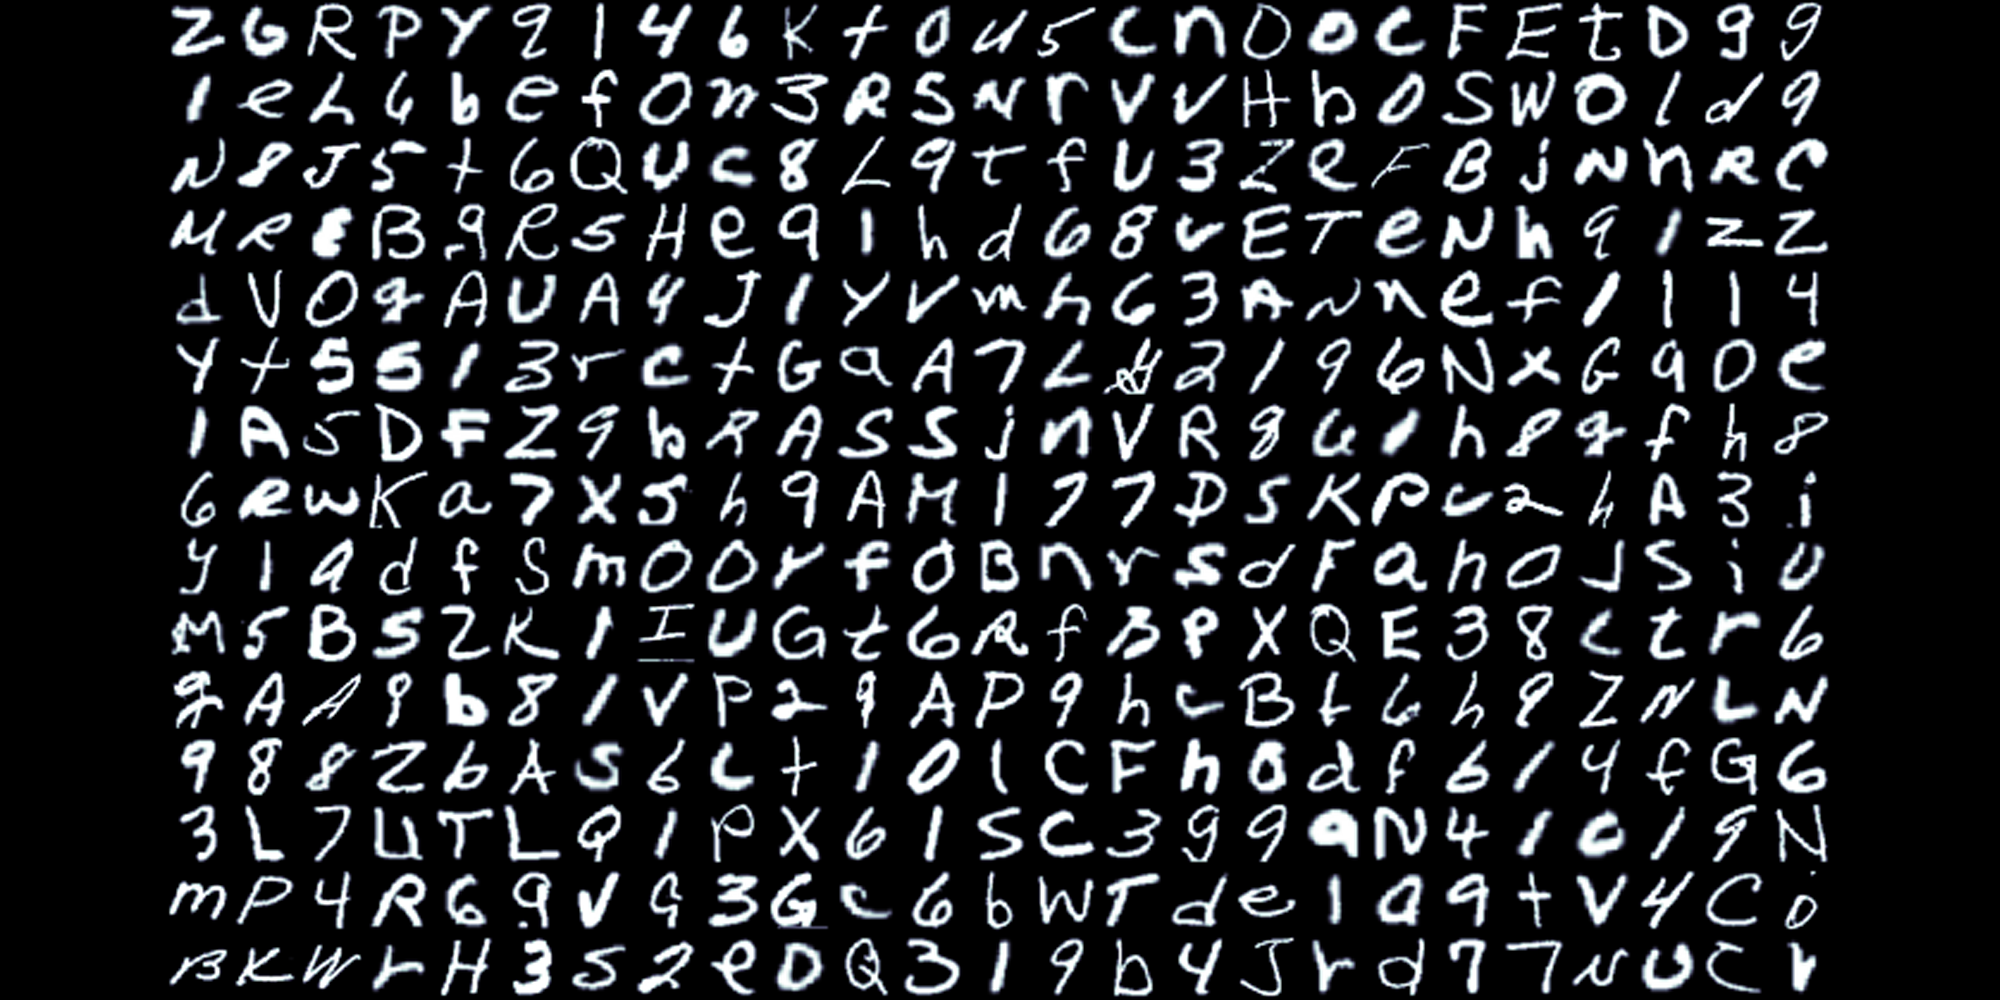 Z G R P Y 9 1 4 6 K t 0 U 5 C n O 0 C F E t D 9 9
1 e h 6 b e f O n 3 R S N r V V H b 0 S W O l d 9
N 8 J 5 t 6 Q U C 8 L 9 T f U 3 Z e F B j N n R C
M R E B 9 R 5 H e 9 1 h d 6 8 r E T e N h 9 1 Z Z
d V O q A U A 4 J 1 Y V m h 6 3 A N n e f 1 1 1 4
Y t 5 S 1 3 r C t G a A 7 L 2 1 9 6 N x G 9 0 e
1 A 5 D F Z 9 b R A S S j n V R 8 G 1 h 8 q f h 8
6 R w K a 7 X 5 h 9 A M 1 7 7 D S K P C 2 h A 3 i
Y 1 a d f S m O O r f 0 B n r S d F a h O J S i U
M 5 B S Z K 1 I U G t 6 R f B P X Q E 3 8 C t r 6
g A A 9 b 8 1 V P 2 9 A P 9 h C B t 6 h 9 Z N L N
9 8 8 Z b A S 6 C t 1 0 1 C F h 0 d f 6 1 4 f G 6
3 L 7 U T L Q 1 P X 6 1 S C 3 9 9 q N 4 1 0 1 9 N
m P 4 R 6 9 V G 3 G C 6 b W T d e 1 a 9 t V 4 C O
B K W r H 3 S 2 e D Q 3 1 9 b 4 J r d 7 7 N U C r